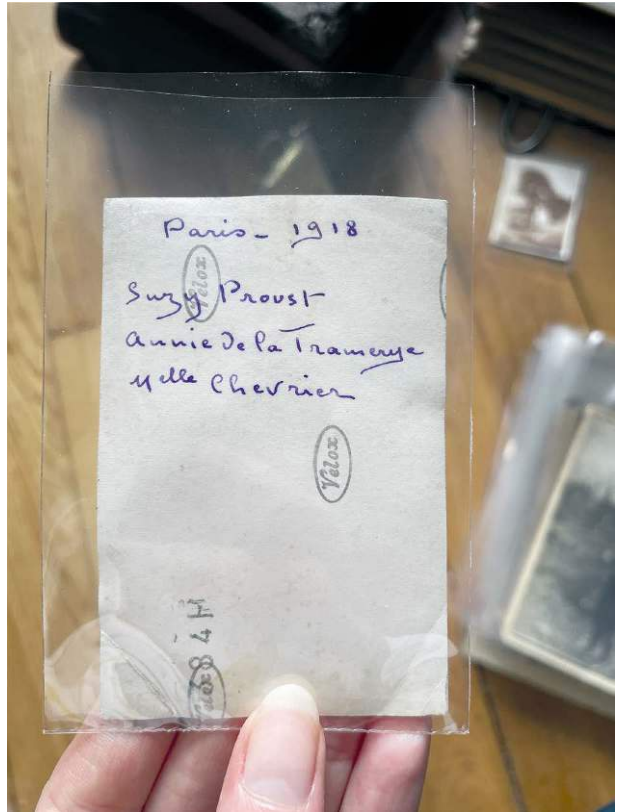 Paris - 1918
Suzy Proust
Annie de la Tramerye
Melle Chevrier
Velox
Velox
Velox